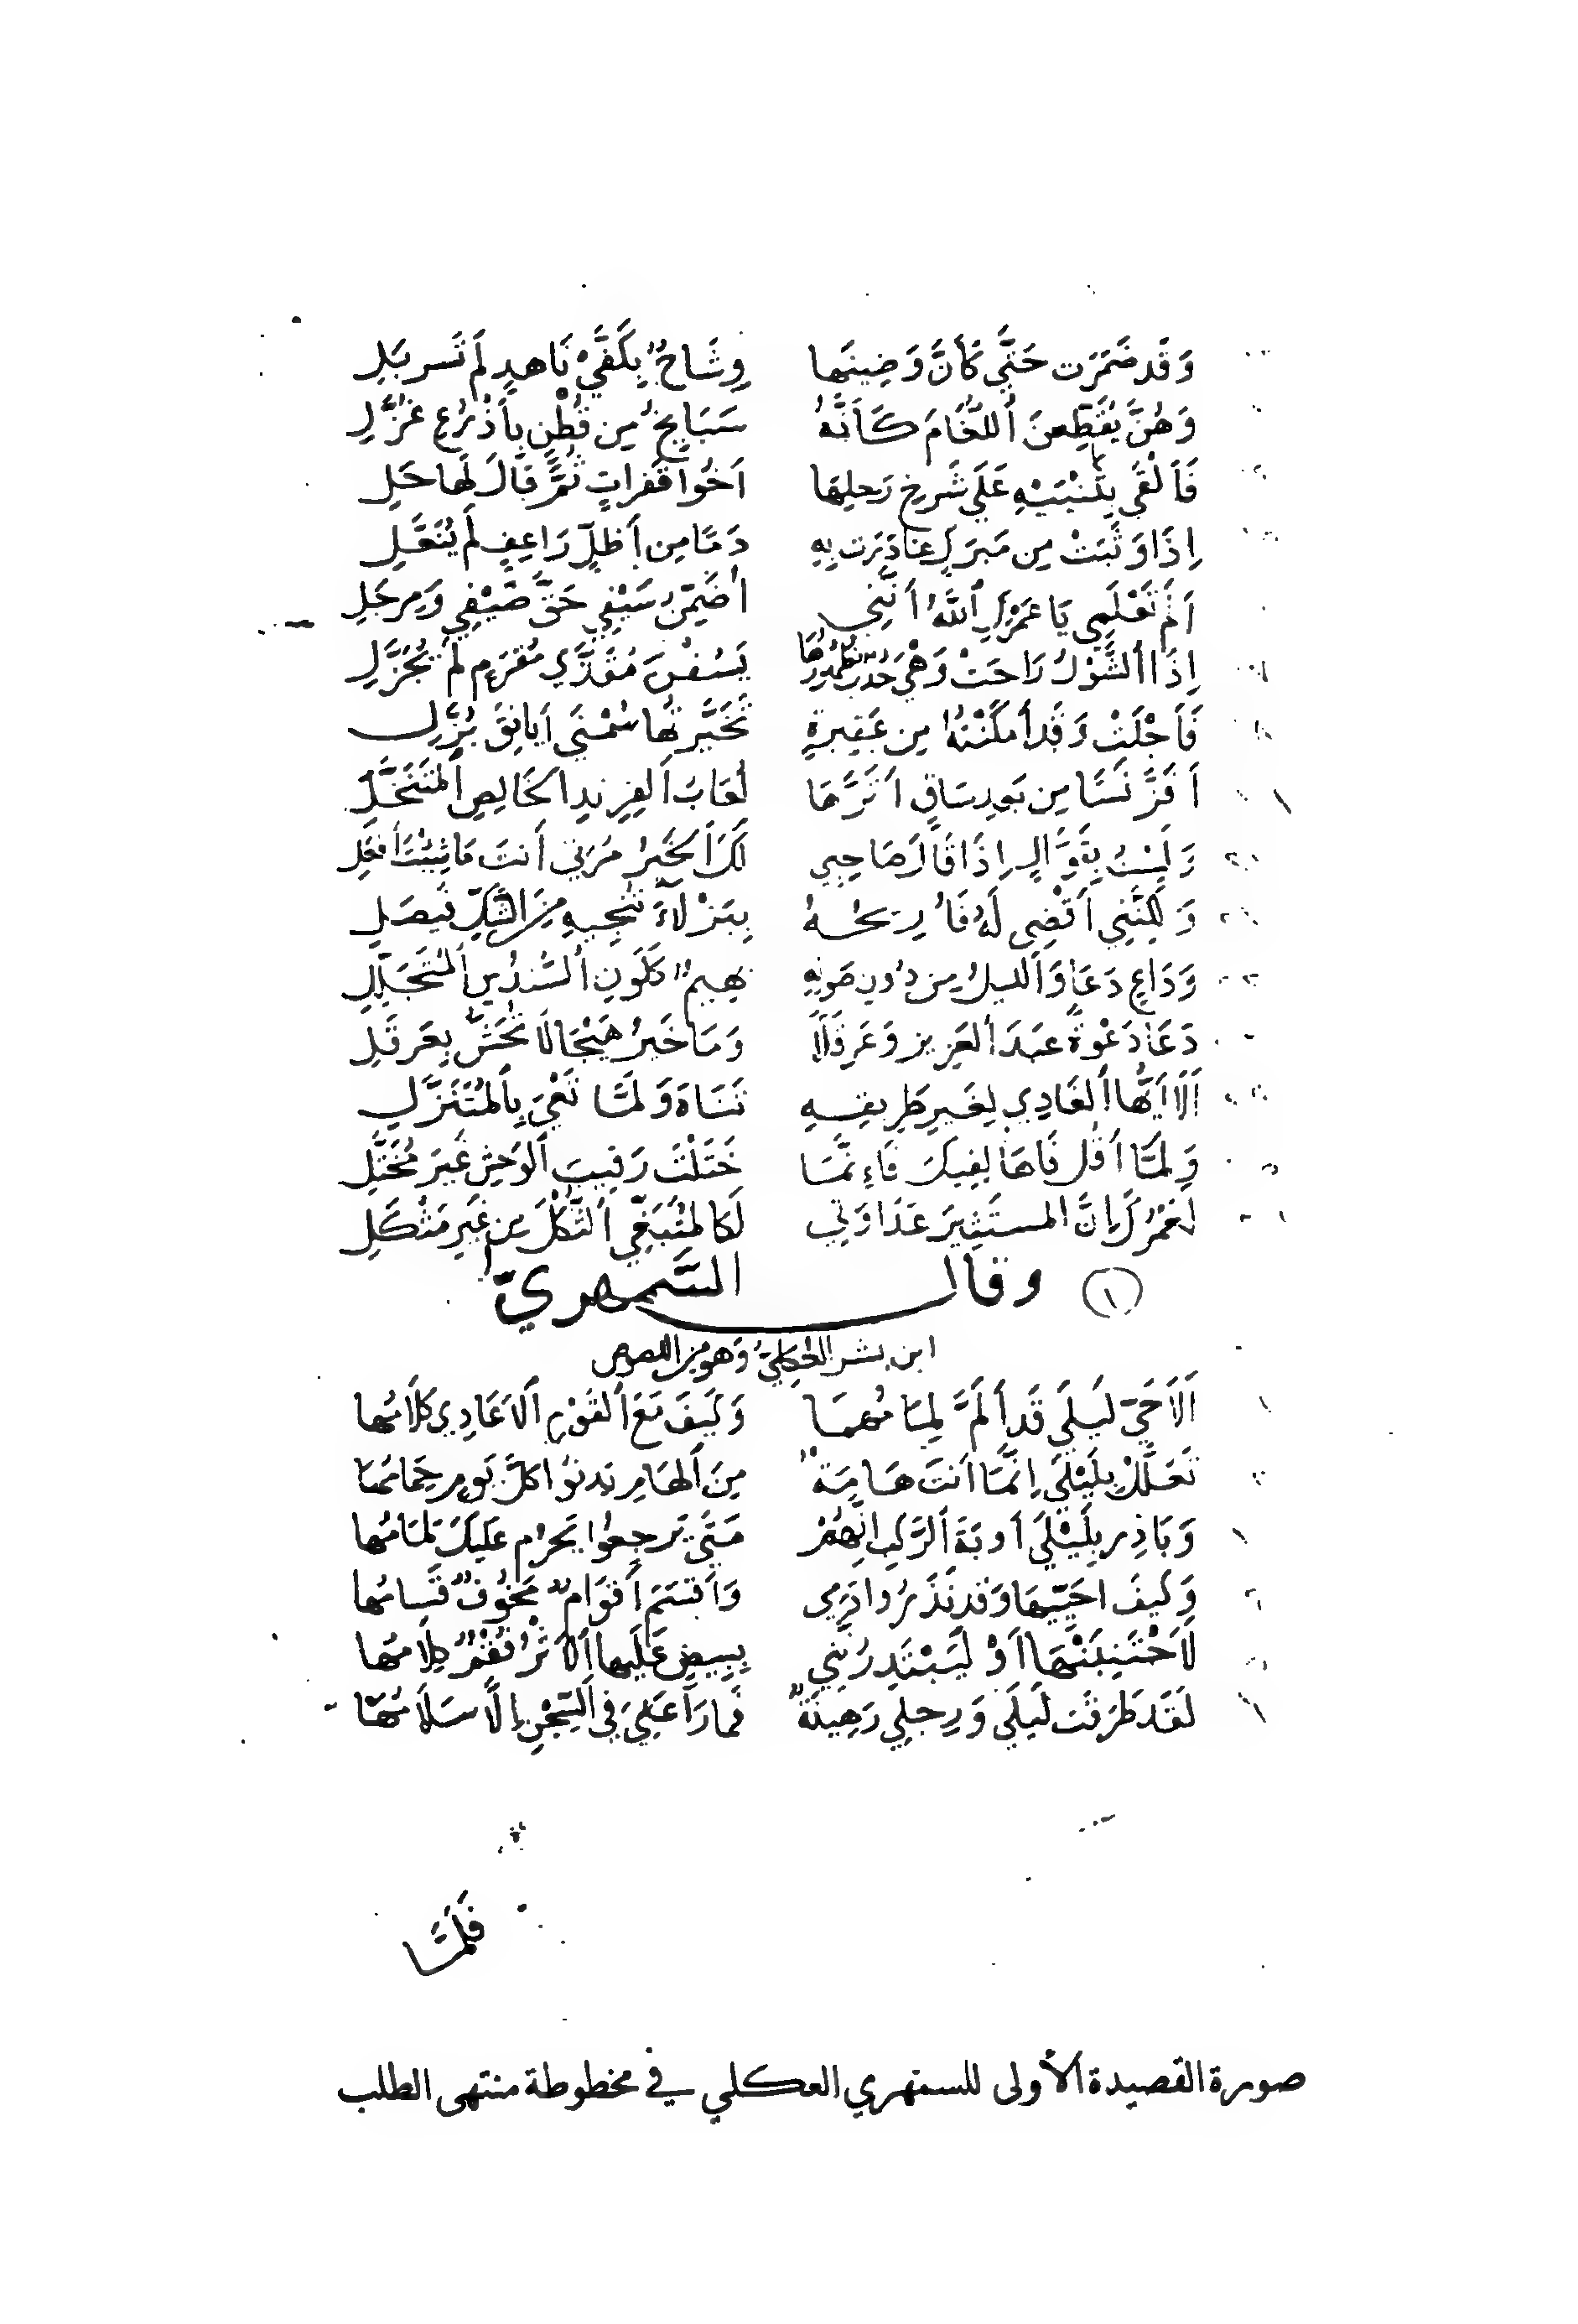 وَقَد ضَمَرَت حَتَّى كَأَنَّ وَضِينَها وِشَاحٌ بِكَفَّيْ نَاهِدٍ لَم تَسَربَلِ
وَهُنَّ يُقَطِّعنَ اُللُّغَامَ كَأَنَّهُ سَبَايِخُ مِن قُطْنٍ بِأَذْرُعِ غُزَّلِ
فَأَلْقَى عَلَى شَرخِ رَحلِها اَخُوا قَفَراتٍ ثُمَّ قَالَ لَها حَلِ
اِذَا وَثَبَتْ مِن مَبرَكٍ غادَرَت بِهِ دَمًا مِن أَظَلٍّ رَاعِفٍ لَم يُنَعَّلِ
اَلَم تَعْلَمِي يَا عَمْرَكِ اُللَّهُ اَنَّنِي اُضَمِّنُ سَيْفِي حَقَّ ضَيْفِي وَمِرجَلِ
اِذَا اُلشَّوْلُ رَاحَتْ وَهْيَ حُدْبٌ ظُهُورُها
فَاَجْلَتْ وَقَد أَمكَنْتُهُ مِن عَقِيرَةٍ تَخَيَّرتُها مِنْ اَيانِقَ بُزَّلِ
أَفَزَّ نَسًا مِن بَعدِ سَاقٍ اَتَرَّهَا لُعَابُ اَلفِرِندِ اَلخَالِصِ اَلمُتَنَخَّلِ
وَلَستُ بِقَوَّالٍ اِذَا قَالَ صَاحِبِي لَكَ اَلخَيرُ مُرنِي أَنتَ مَا شِئتَ أَفعَلِ
وَلٰكِنَّنِي اَقْضِي لَهُ فَاُرِيحُهُ بِبَزْلآءَ تُنْجِيهِ مِنَ الشَّكِّ فَيصَلِ
وَدَاعٍ دَعَا وَاَلليلُ مِن دُونِ صَوتِهِ بَهِيمٌ كَلَونِ اُلسُّندُسِ اَلمُتَجَلِّلِ
دَعَا دَعْوَةً عَبدَ اَلعَزِيزِ وَعَرقَلًا وَمَا خَيرُ هَيْجَا لَا تُحَشُّ بِعَرقَلِ
اَلَا اَيُّها اَلغَادِي لِغَيرِ طَرِيقِهِ تَنَاهَ وَلَمَّا تَعْيَ بِاَلمُتَنَزَّلِ
وَلَمَّا اَقُل فَاهَا لِفِيكَ فَاِنَّمَا خَتَلْتَ رَقِيبَ اَلوَحشِ غَيرَ مُخَتَّلِ
لَعَمرُكَ اِنَّ المستَثِيرَ عَدَاوَتِي لَكَالمُبْتَغِي اَلثُّكْلَ مِن غَيرِ مَثْكَلِ
١ وقال السَّمهَرِيّ
ابن بشر العُكلِيُّ وَهو مِنَ اللصوص
اَلَا حَيِّ لَيلَى قَد أَلَمَّ لِمَامُهَا وَكَيفَ مَعَ اَلقَوْمِ اَلاَعَادِي كَلَامُها
تَعَلَّلْ بِلَيْلَى اِنَّمَا اَنتَ هَامَةٌ مِنَ اَلهَامِ يَدنُوا كُلَّ يَومٍ حِمَامُها
وَبَادِر بِلَيْلَى اَوبَةَ اَلرَّكبِ اِنَّهُمْ مَتَى يَرجِعُوا يَحرُم عَلَيكَ لَمَامُها
وَكَيفَ اُحَيِّيهَا وَقَد نَذَرُوا دَمِي وَاَقسَمَ اَقوَامٌ مَخُوفٌ قَسامُها
لَاَجْتَنِبَنْهَا اَوْ لَيَبْتَدِرُنَّنِي بِبِيضٍ عَلَيها اَلاَثْرُ فُقْمٌ كِلَامُهَا
لَقَد طَرَقَت لَيلَى وَرِجلِي رَهِينَةٌ فَما رَاعَنِي فِي اَلسِّجْنِ اِلَّا سَلَامُهَا
فَلَمَّا
صورة القصيدة الأولى للسمهري العكلي في مخطوطة منتهى الطلب